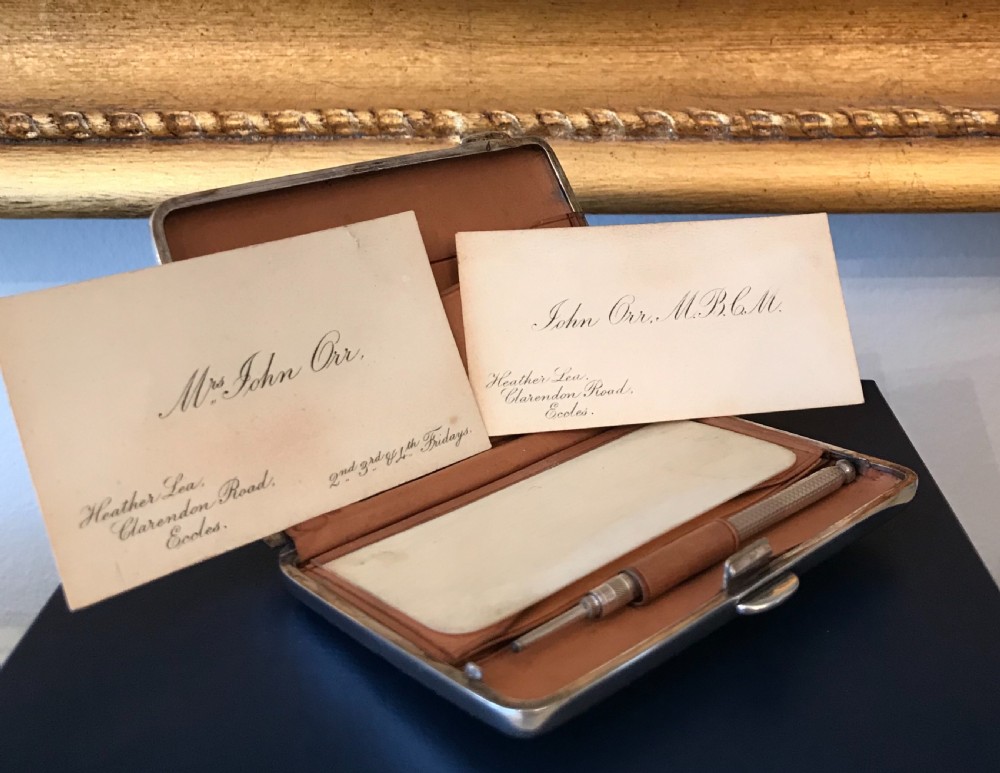 Mrs. John Orr.
Heather Lea.
Clarendon Road.
Eccles.
2nd. 3rd. & 4th Fridays.
John Orr. M.B.C.M.
Heather Lea.
Clarendon Road.
Eccles.